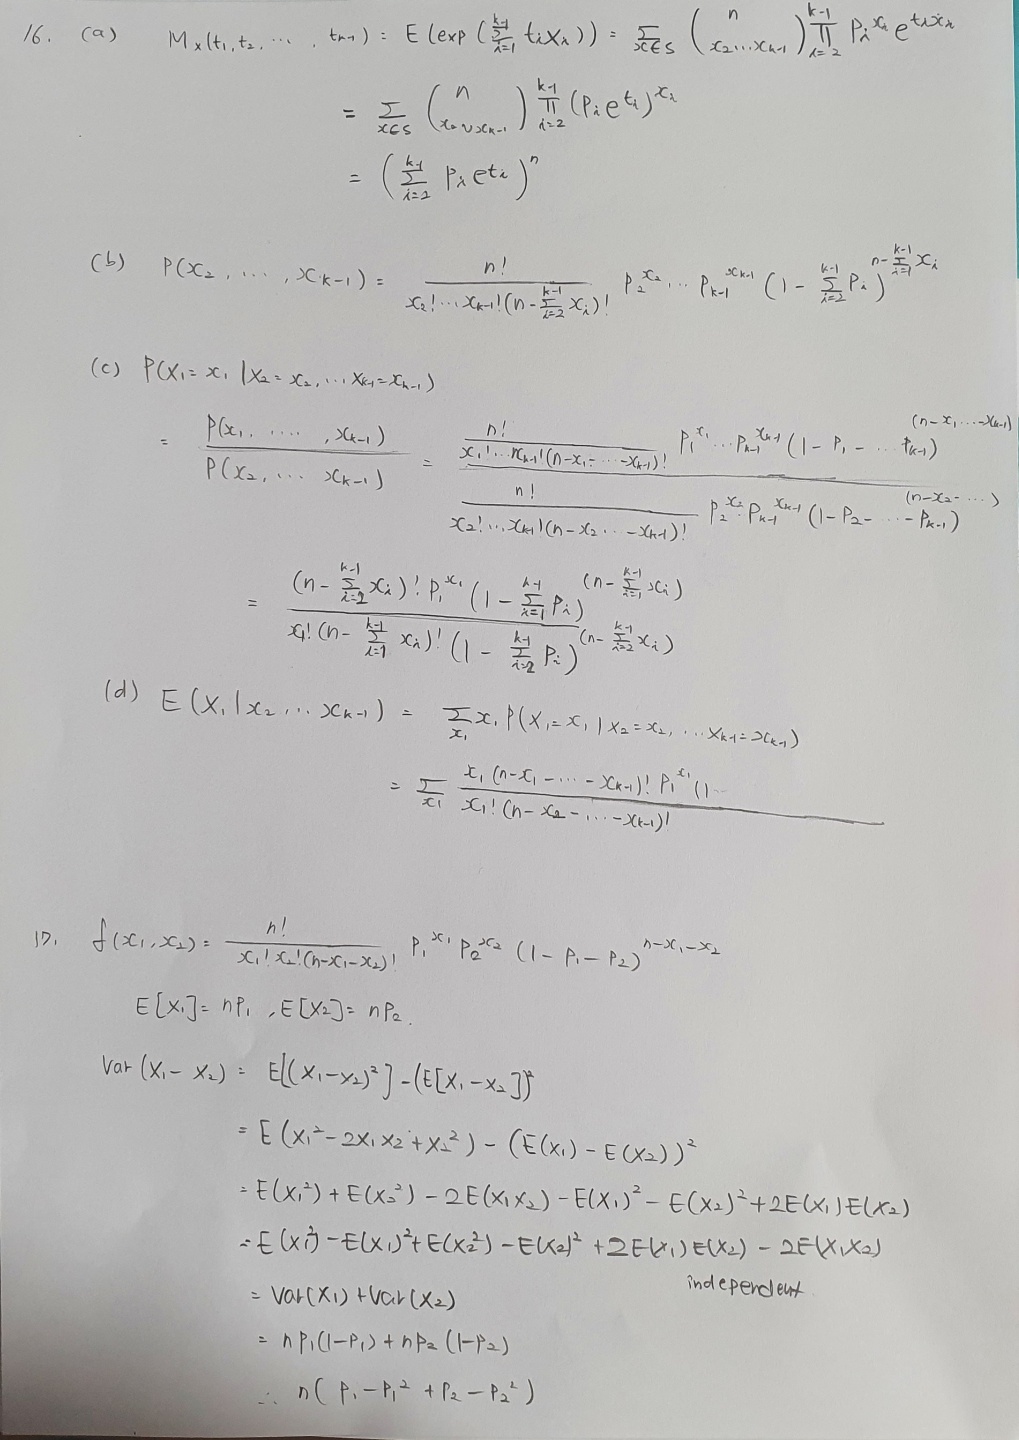 16. (a) M_x(t_1, t_2, ..., t_{k-1}) = E(exp(\sum_{i=1}^{k-1} t_i x_i)) = \sum_{x∈S} \binom{n}{x_2...x_{k-1}} \prod_{i=2}^{k-1} P_i^{x_i} e^{t_i x_i}
= \sum_{x∈S} \binom{n}{x_2 ... x_{k-1}} \prod_{i=2}^{k-1} (P_i e^{t_i})^{x_i}
= (\sum_{i=2}^{k-1} P_i e^{t_i})^n
(b) P(x_2, ..., x_{k-1}) = \frac{n!}{x_2! ... x_{k-1}! (n - \sum_{i=2}^{k-1} x_i)!} P_2^{x_2} ... P_{k-1}^{x_{k-1}} (1 - \sum_{i=2}^{k-1} P_i)^{n - \sum_{i=1}^{k-1} x_i}
(c) P(X_1 = x_1 | X_2 = x_2, ... X_{k-1} = x_{k-1})
= \frac{P(x_1, ...., x_{k-1})}{P(x_2, ... x_{k-1})} = \frac{\frac{n!}{x_1! ... x_{k-1}! (n - x_1 - ... - x_{k-1})!} P_1^{x_1} ... P_{k-1}^{x_{k-1}} (1 - P_1 - ... P_{k-1})^{(n - x_1 ... - x_{k-1})}}{\frac{n!}{x_2! ... x_{k-1}! (n - x_2 ... - x_{k-1})!} P_2^{x_2} .. P_{k-1}^{x_{k-1}} (1 - P_2 - ... - P_{k-1})^{(n - x_2 - ...)}}
= \frac{(n - \sum_{i=2}^{k-1} x_i)! P_1^{x_1} (1 - \sum_{i=1}^{k-1} P_i)^{(n - \sum_{i=1}^{k-1} x_i)}}{x_1! (n - \sum_{i=1}^{k-1} x_i)! (1 - \sum_{i=2}^{k-1} P_i)^{(n - \sum_{i=2}^{k-1} x_i)}}
(d) E(X_1 | x_2 ... x_{k-1}) = \sum_{x_1} x_1 P(X_1 = x_1 | X_2 = x_2, ... X_{k-1} = x_{k-1})
= \sum_{x_1} \frac{x_1 (n - x_1 - ... - x_{k-1})! P_1^{x_1} (1 -}{x_1! (n - x_2 - ... - x_{k-1})!}
17. f(x_1, x_2) = \frac{n!}{x_1! x_2! (n - x_1 - x_2)!} P_1^{x_1} P_2^{x_2} (1 - P_1 - P_2)^{n - x_1 - x_2}
E[X_1] = nP_1, E[X_2] = nP_2.
Var(X_1 - X_2) = E[(X_1 - X_2)^2] - (E[X_1 - X_2])^2
= E(X_1^2 - 2X_1X_2 + X_2^2) - (E(X_1) - E(X_2))^2
= E(X_1^2) + E(X_2^2) - 2E(X_1X_2) - E(X_1)^2 - E(X_2)^2 + 2E(X_1)E(X_2)
= E(X_1^2) - E(X_1)^2 + E(X_2^2) - E(X_2)^2 + 2E(X_1)E(X_2) - 2E(X_1X_2)
independent
= Var(X_1) + Var(X_2)
= nP_1(1-P_1) + nP_2(1-P_2)
∴ n(P_1 - P_1^2 + P_2 - P_2^2)